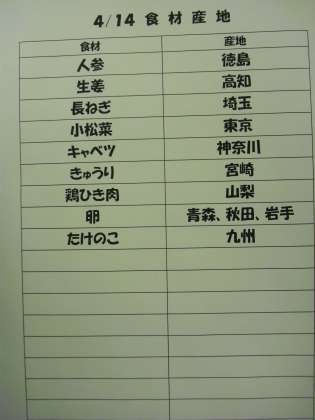 4/14 食材産地
食材 産地
人参 徳島
生姜 高知
長ねぎ 埼玉
小松菜 東京
キャベツ 神奈川
きゅうり 宮崎
鶏ひき肉 山梨
卵 青森、秋田、岩手
たけのこ 九州